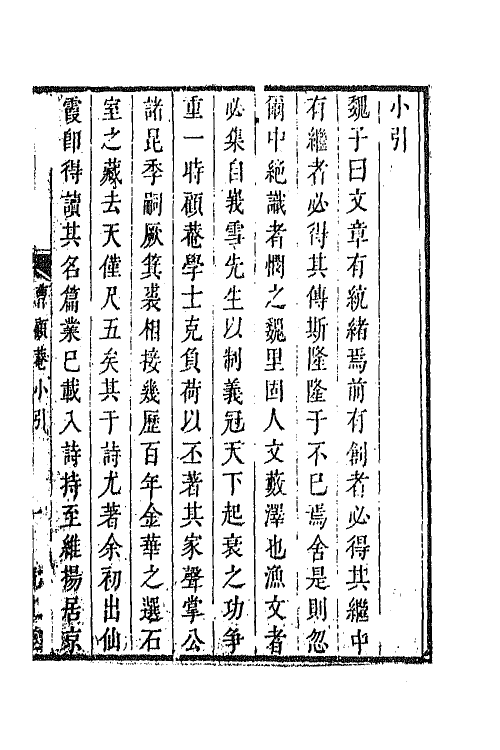 小引
魏子曰文章有統緒焉前有創者必得其繼中
有繼者必得其傳斯隆隆于不已焉舍是則忽
爾中絶識者憫之魏里固人文藪澤也漁文者
必集自峩雪先生以制義冠天下起衰之功爭
重一時顧菴學士克負荷以丕著其家聲掌公
諸昆季嗣厥箕裘相接幾歷百年金華之選石
室之藏去天僅尺五矣其于詩尤著余初出仙
霞卽得讀其名篇業已載入詩持至維揚居京
曹顧菴小引
一